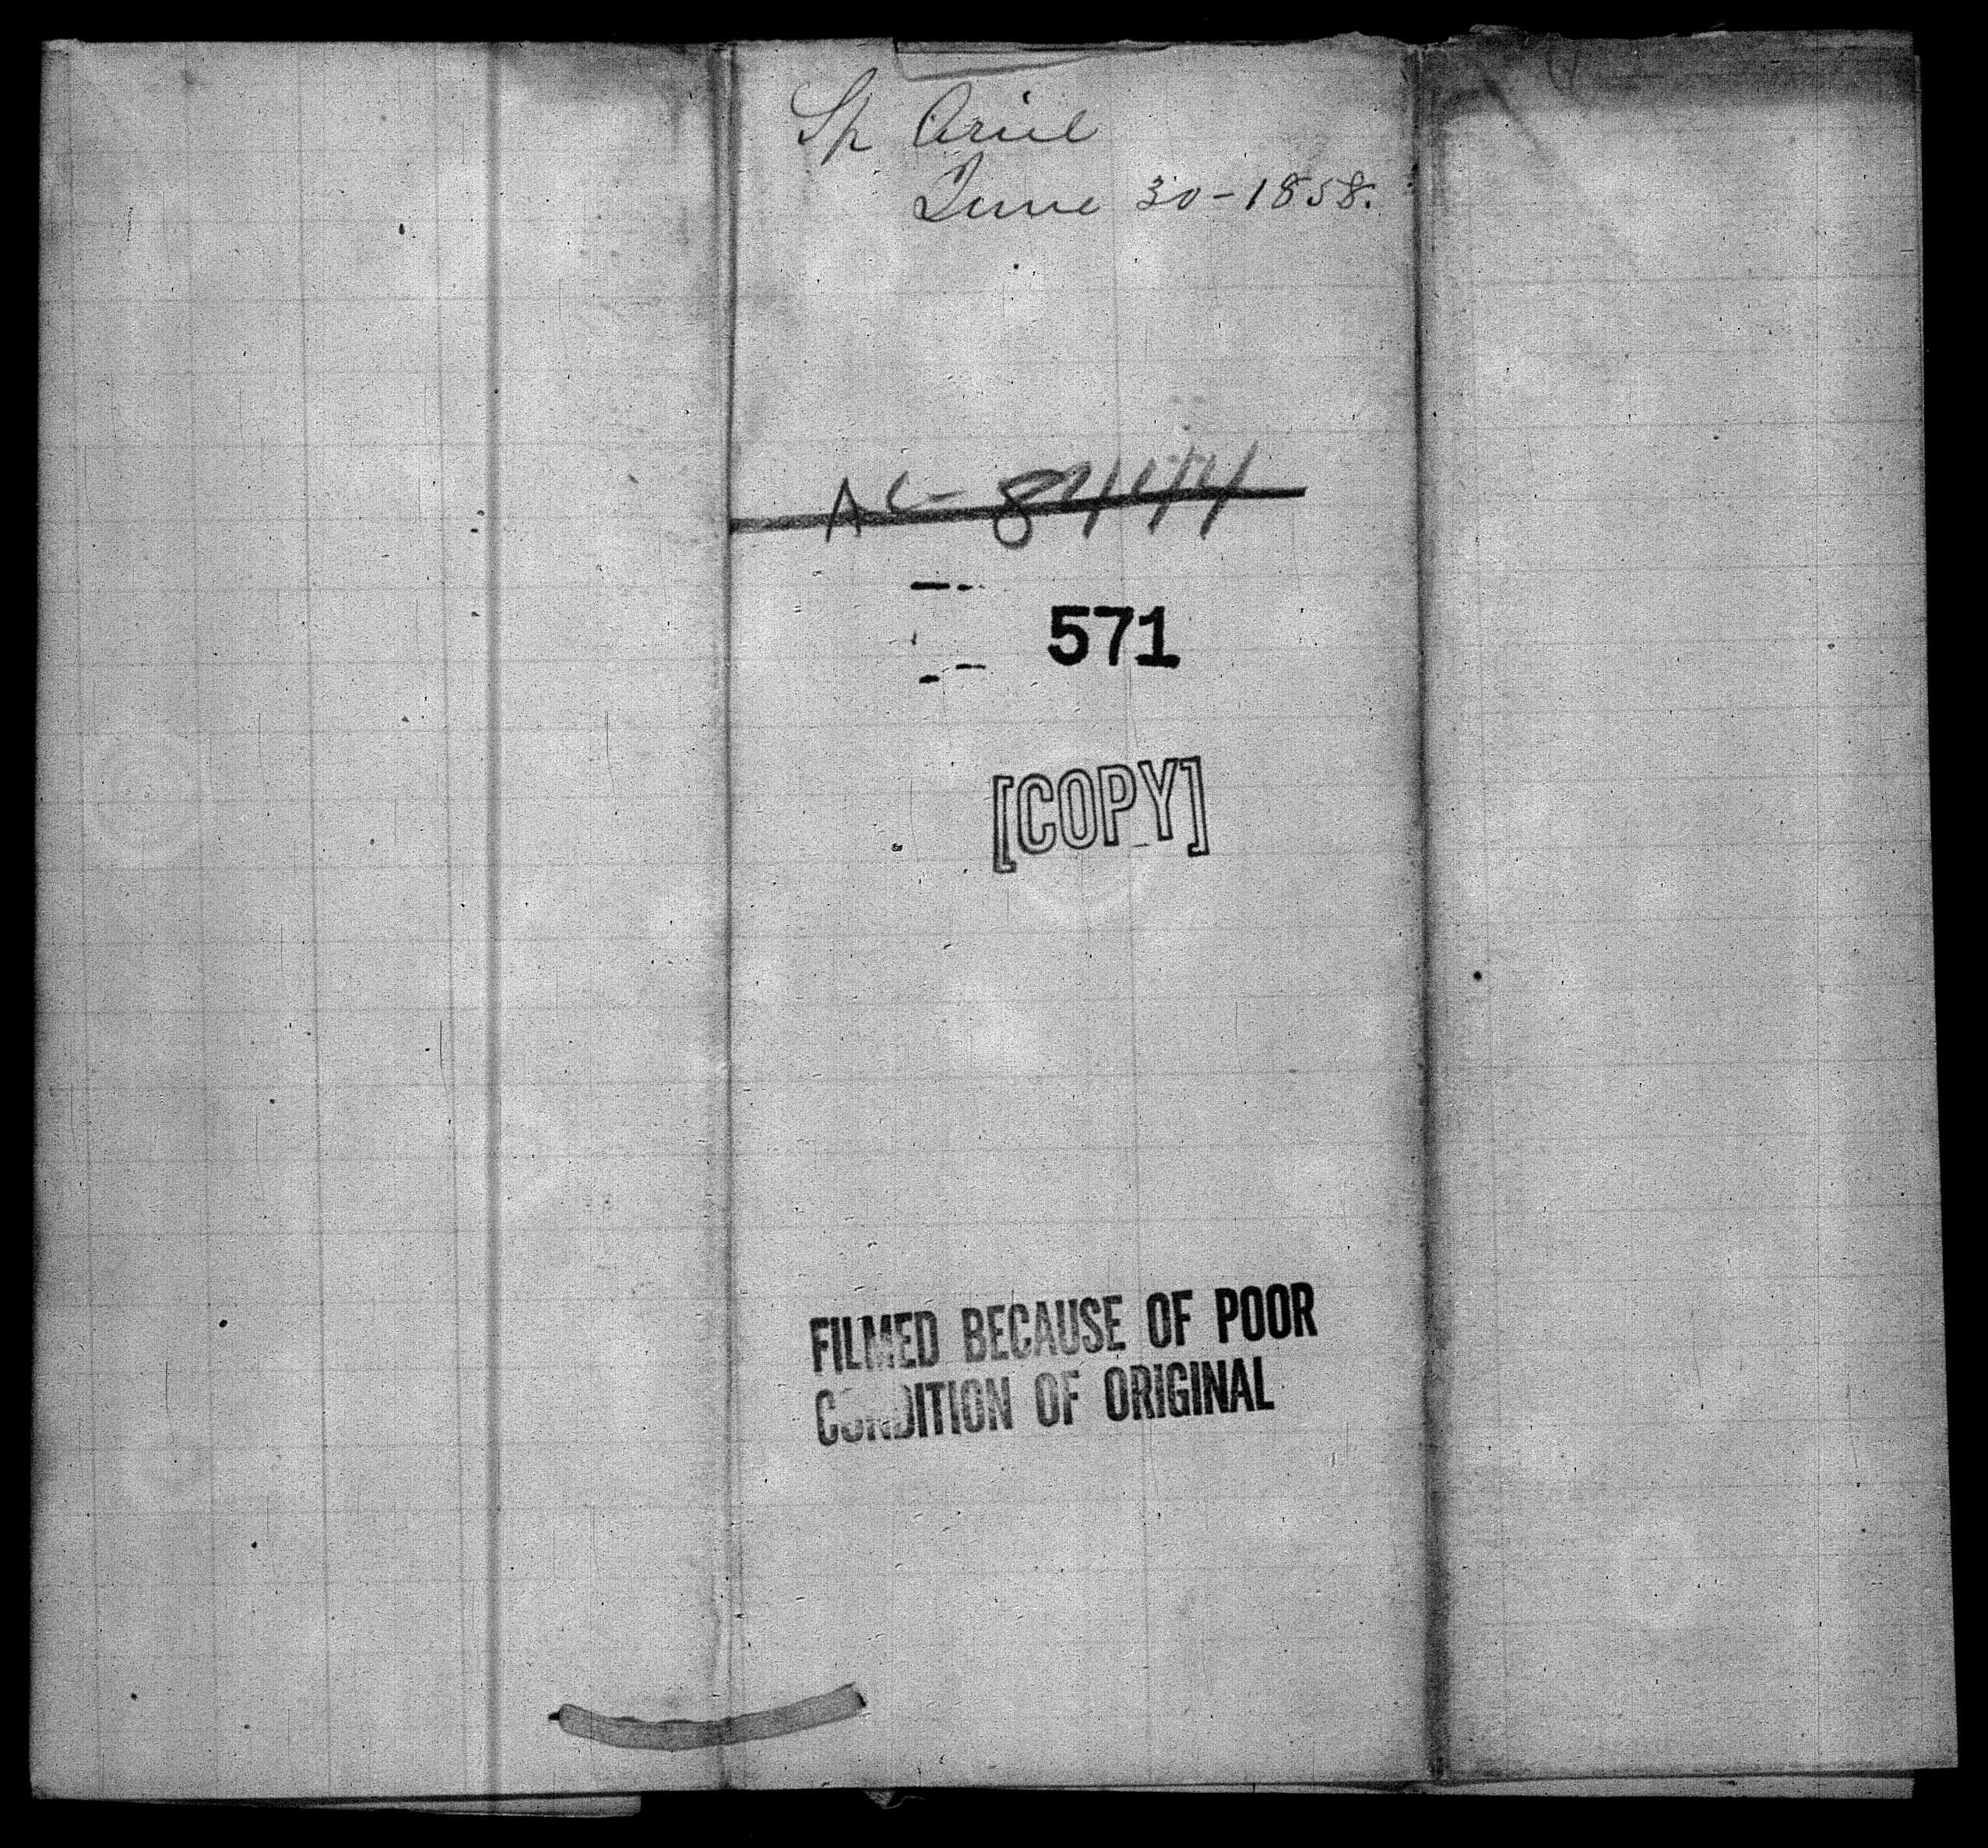 Sp Ariel
June 30-1858.
571
[COPY]
FILMED BECAUSE OF POOR
CONDITION OF ORIGINAL